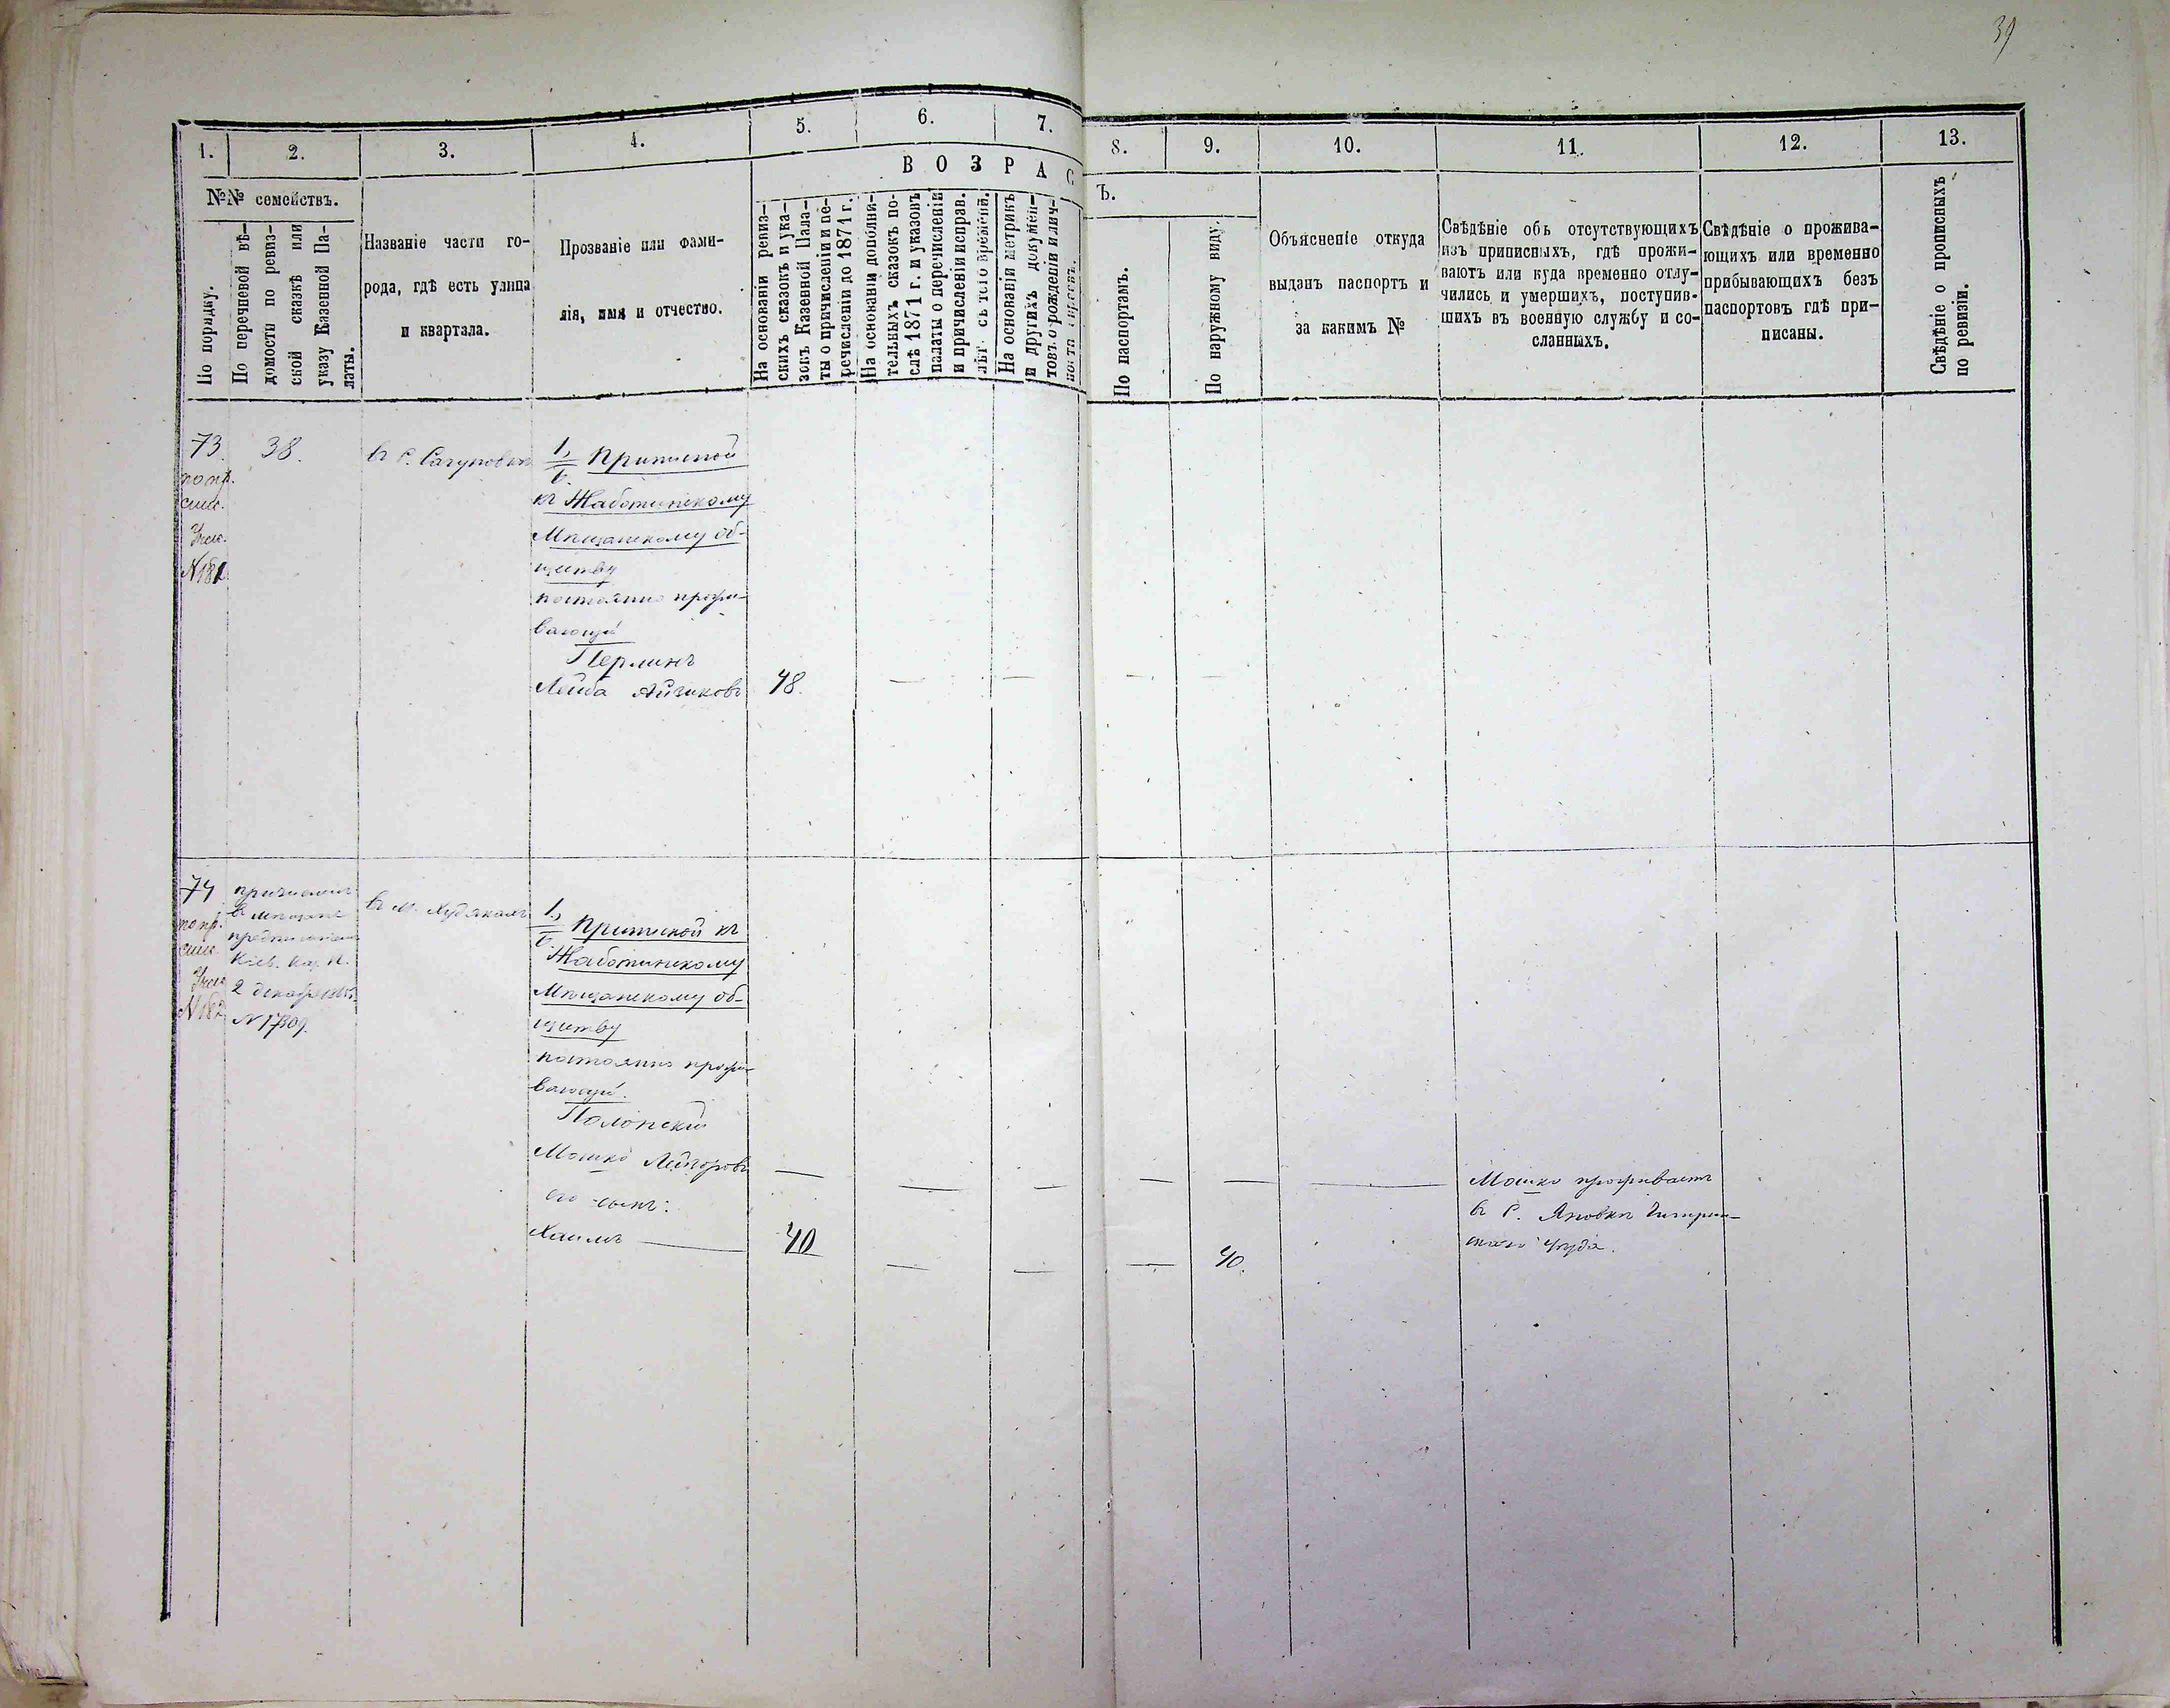 39
1.
2.
3.
4.
5.
6.
7.
8.
9.
10.
11.
12.
13.
ВОЗРАС
Ъ.
№№ семействъ.
По порядку.
По перечневой вѣ-
домости по ревиз-
ской сказкѣ или
указу Казенной Па-
латы.
Названіе части го-
рода, гдѣ есть улица
и квартала.
Прозваніе или фами-
лія, имя и отчество.
На основаніи ревиз-
скихъ сказокъ и ука-
зовъ Казенной Пала-
ты о причисленіи и пе-
речисленіи до 1871 г.
На основаніи дополни-
тельныхъ сказокъ по-
слѣ 1871 г. и указовъ
палаты о перечисленіи
и причисленіи исправ.
лѣт. съ того времени.
На основаніи метрикъ
и других документ-
товъ о рожденіи и лич-
По паспортамъ.
По наружному виду.
Объясненіе откуда
выданъ паспортъ и
за какимъ №
Свѣдѣніе объ отсутствующихъ
изъ приписныхъ, гдѣ прожи-
ваютъ или куда временно отлу-
чились и умершихъ, поступив-
шихъ въ военную службу и со-
сланныхъ.
Свѣдѣніе о прожива-
ющихъ или временно
прибывающихъ безъ
паспортовъ гдѣ при-
писаны.
Свѣдѣніе о прописныхъ
по ревизіи.
73.
по пр.
спис.
№ 181
38.
въ с. Сагуновкѣ
1.
Б. Приписной
къ Жаботинскому
Мѣщанскому об-
ществу
постоянно прожи-
вающій
Перлинъ
Лейба Айзиковъ 48.
74
по пр.
спис.
№ 182
причисленъ
въ мѣщане
предписаніемъ
Кіев. Каз. П.
2 декабря
№ 17309.
въ м. Худякахъ
1.
Б. Приписной къ
Жаботинскому
Мѣщанскому об-
ществу
постоянно прожи-
вающій.
Полонскій
Мошко Лейзоровъ
его сынъ:
Хаимъ 40 40.
Мошко проживаетъ
въ с. Яновкѣ Чигирин-
скаго уѣзда.